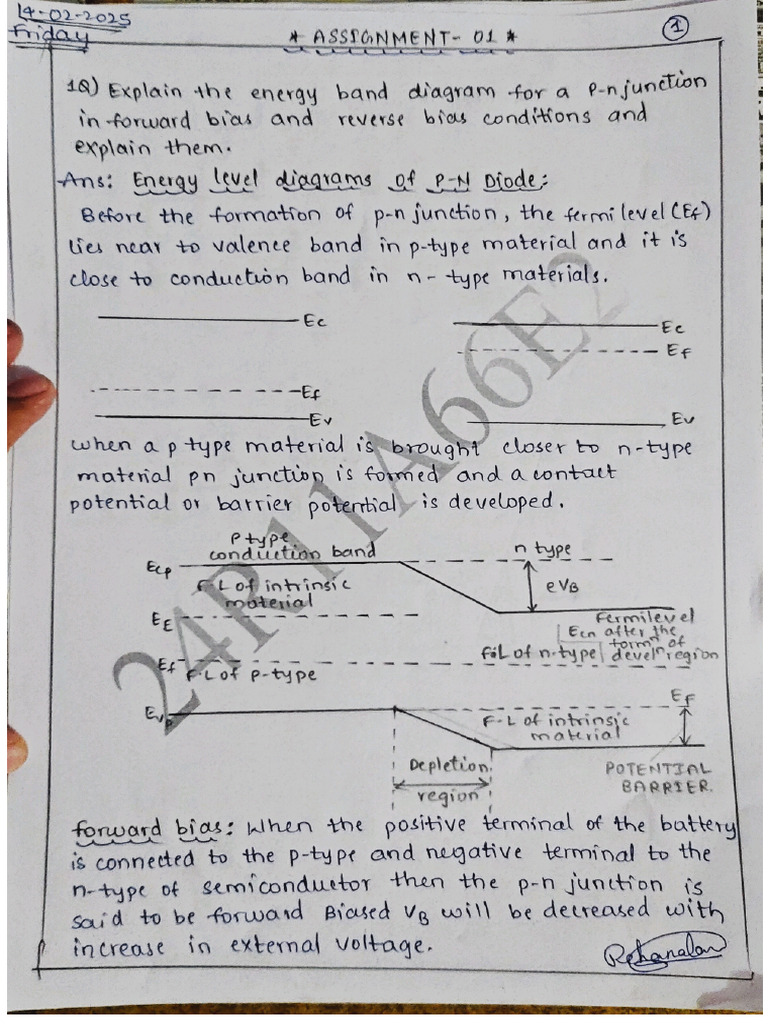 14-02-2025
Friday
* ASSIGNMENT- 01 *
1
1Q) Explain the energy band diagram for a P-n junction
in forward bias and reverse bias conditions and
explain them.
Ans: Energy level diagrams of P-N Diode:
Before the formation of p-n junction, the fermi level (Ef)
lies near to valence band in p-type material and it is
close to conduction band in n- type materials.
Ec
Ec
Ef
Ef
Ev
Ev
when a p type material is brought closer to n-type
material pn junction is formed and a contact
potential or barrier potential is developed.
P type
conduction band
n type
Ecp
F-L of intrinsic
material
eVB
EE
Fermilevel
Ecn after the
formn of
F.L of n-type develn region
Ef
F.L of P-type
EF
Evp
F-L of intrinsic
material
Depletion
region
POTENTIAL
BARRIER.
forward bias: When the positive terminal of the battery
is connected to the p-type and negative terminal to the
n-type of semiconductor then the p-n junction is
said to be forward Biased VB will be decreased with
increase in external voltage.
24R11A66E2